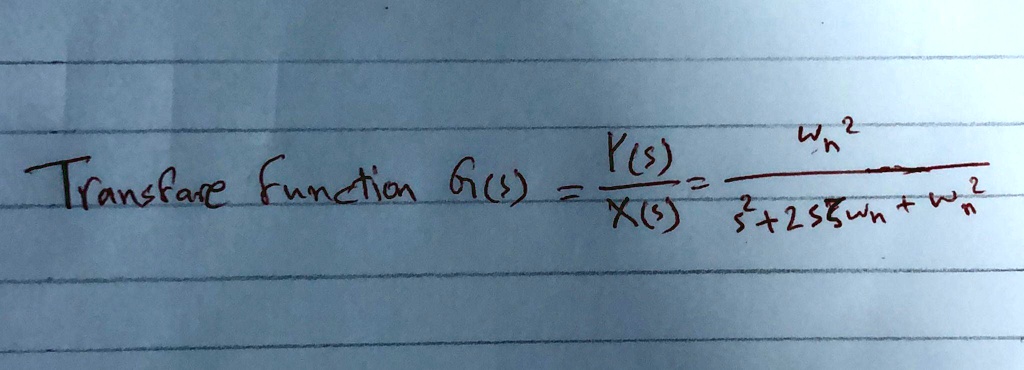 Transfare function G(s) = Y(s)/X(s) = ωn²/(s²+2sξωn+ωn²)